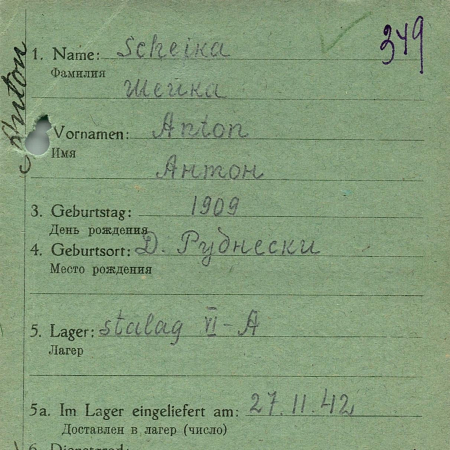 349
Anton
1. Name: Scheika
Фамилия
Шейка
Vornamen: Anton
Имя
Антон
3. Geburtstag: 1909
День рождения
4. Geburtsort: Д. Руднески
Место рождения
5. Lager: stalag VI-A
Лагер
5a. Im Lager eingeliefert am: 27.11.42
Доставлен в лагер (число)
6. Dienstgrad: